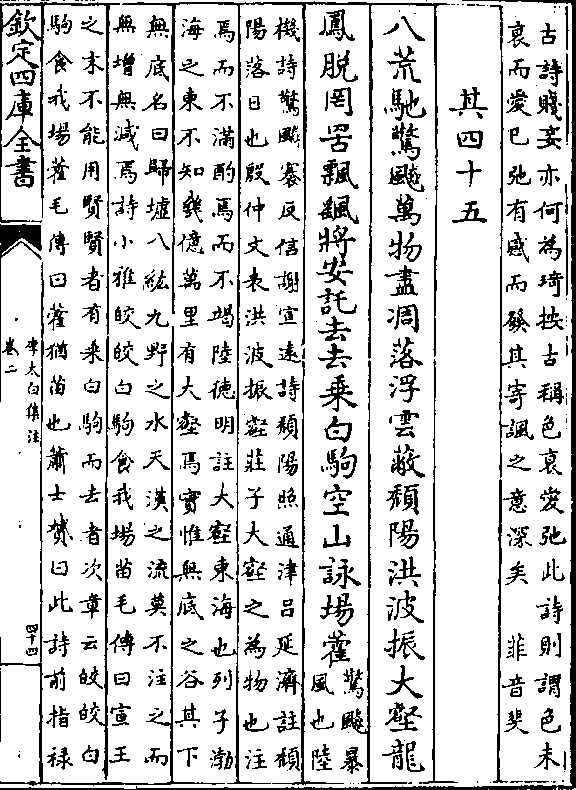 古詩賤妾亦何為琦按古稱色哀愛弛此詩則謂色未
哀而愛已弛有感而發其寄諷之意深矣　菲音斐
其四十五
八荒馳驚飈萬物盡凋落浮雲蔽頽陽洪波振大壑龍
鳳脫罔罟飄颻將安託去去乗白駒空山詠塲藿
驚飈暴
風也陸
機詩驚飈褰反信謝宣逺詩頽陽照通津吕延濟註頽
陽落日也殷仲文表洪波振壑莊子大壑之為物也注
焉而不滿酌焉而不竭陸徳明註大壑東海也列子渤
海之東不知幾億萬里有大壑焉實惟無底之谷其下
無底名曰歸墟八紘九野之水天漢之流莫不注之而
無增無減焉詩小雅皎皎白駒食我場苗毛傳曰宣王
之末不能用賢賢者有乗白駒而去者次章云皎皎白
駒食我場藿毛傳曰藿猶苗也蕭士贇曰此詩前指禄
欽定四庫全書
李太白集注
卷二
四十四